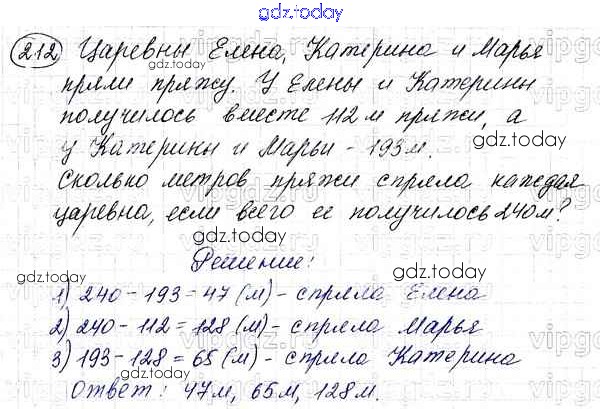 gdz.today
212 Царевны Елена, Катерина и Марья
пряли пряжу. У Елены и Катерины
gdz.today
получилось вместе 112 м пряжи, а
gdz.today
у Катерины и Марьи - 193 м.
gdz.today
Сколько метров пряжи спряла каждая
царевна, если всего ее получилось 240 м?
gdz.today
Решение:
gdz.today
gdz.today
1) 240 - 193 = 47 (м) - спряла Елена
2) 240 - 112 = 128 (м) - спряла Марья
3) 193 - 128 = 65 (м) - спряла Катерина
gdz.today
Ответ: 47м, 65м, 128м.